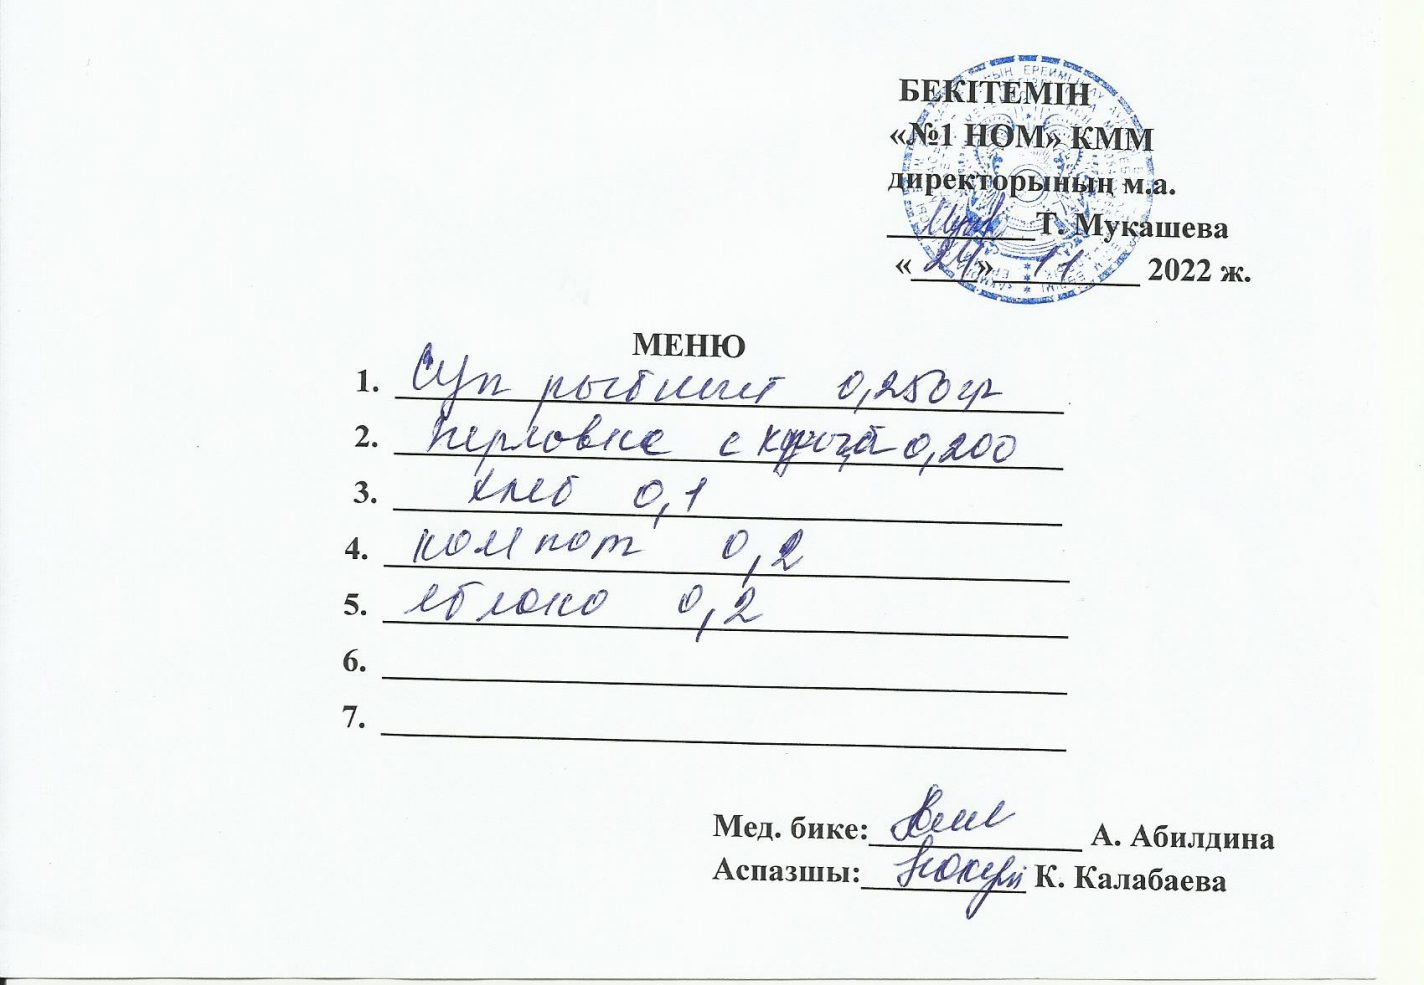 БЕКІТЕМІН
«№1 НОМ» КММ
директорының м.а.
Т. Мукашева
«24» 11 2022 ж.
МЕНЮ
1. Суп рыбный 0,250 гр
2. Перловка с 0,200
3. хлеб 0,1
4. компот 0,2
5. яблоко 0,2
6.
7.
Мед. бике: А. Абилдина
Аспазшы: К. Калабаева